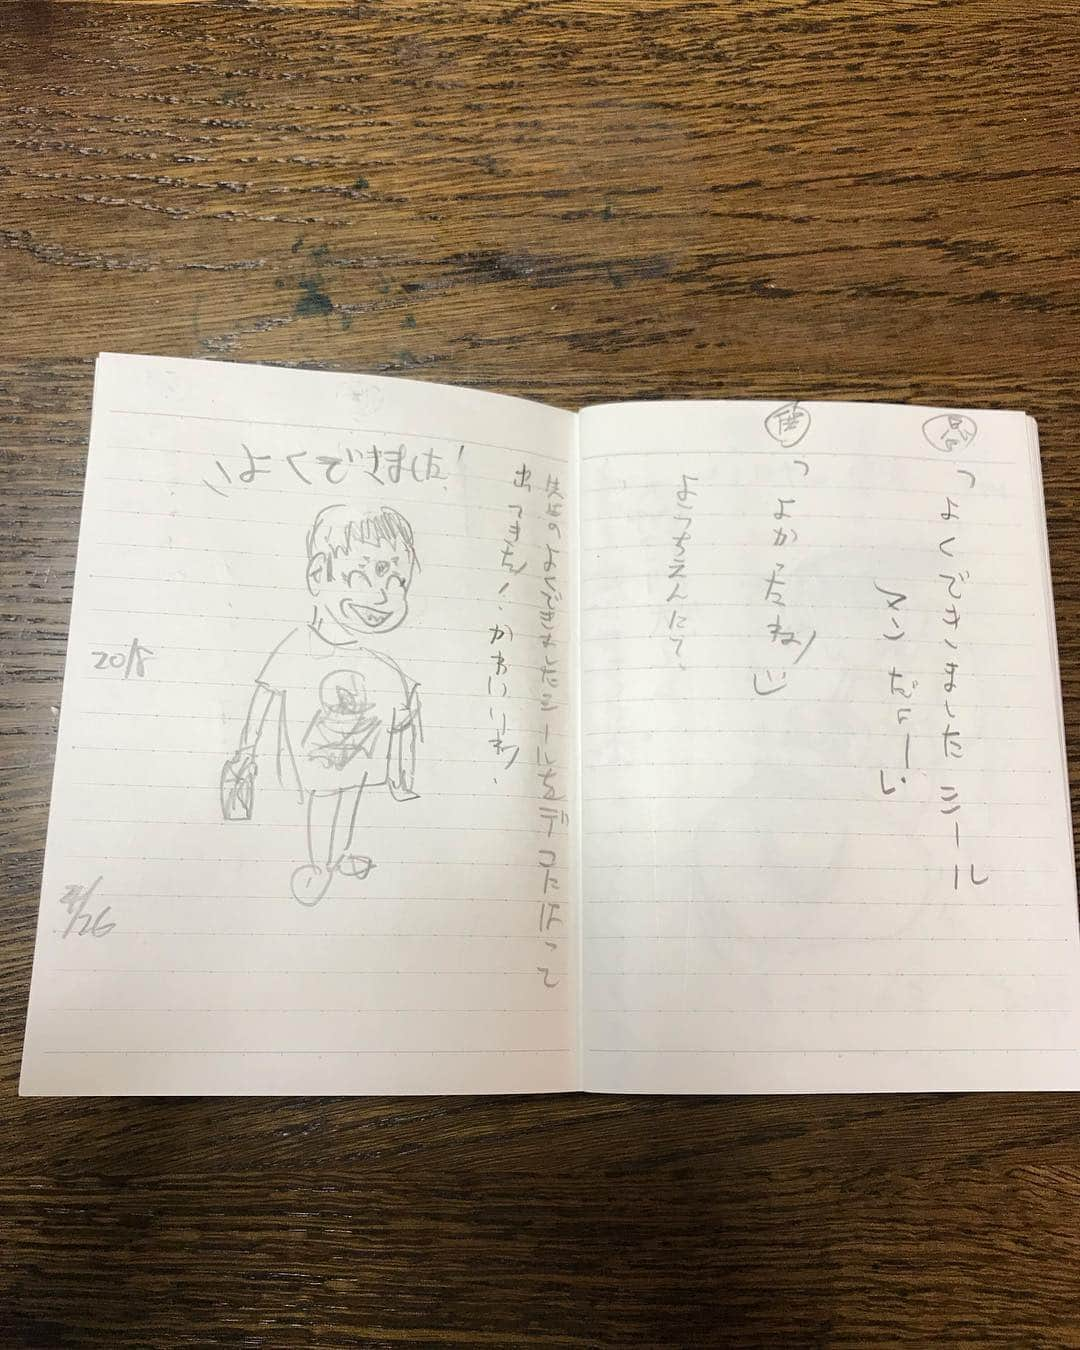 「よくできましたシール
マンだよー」
僕
「よかったね」
ようちえんにて、
のよくできましたシールをデコにはって
出てきた！かわいいね、
よくできました！
2018
4/26